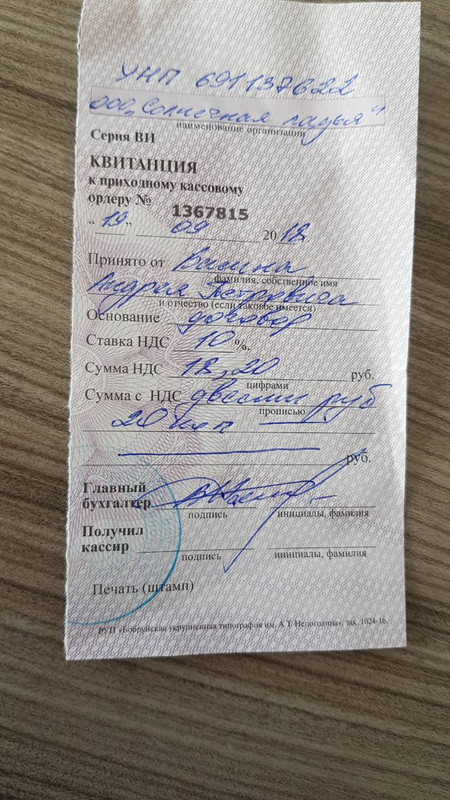 УНП 691137622
ООО "Солнечная ладья"
наименование организации
Серия ВИ
КВИТАНЦИЯ
к приходному кассовому
ордеру № 1367815
" 19 " 09 2018 г.
Принято от Васина
фамилия, собственное имя
Андрея Петровича
и отчество (если таковое имеется)
Основание договор
Ставка НДС 10 %.
Сумма НДС 18,20 руб.
цифрами
Сумма с НДС двести руб
прописью
20 коп
руб.
Главный
бухгалтер
подпись инициалы, фамилия
Получил
кассир
подпись инициалы, фамилия
Печать (штамп)
РУП «Бобруйская укрупненная типография им. А.Т. Непогодина», зак. 1024-16.